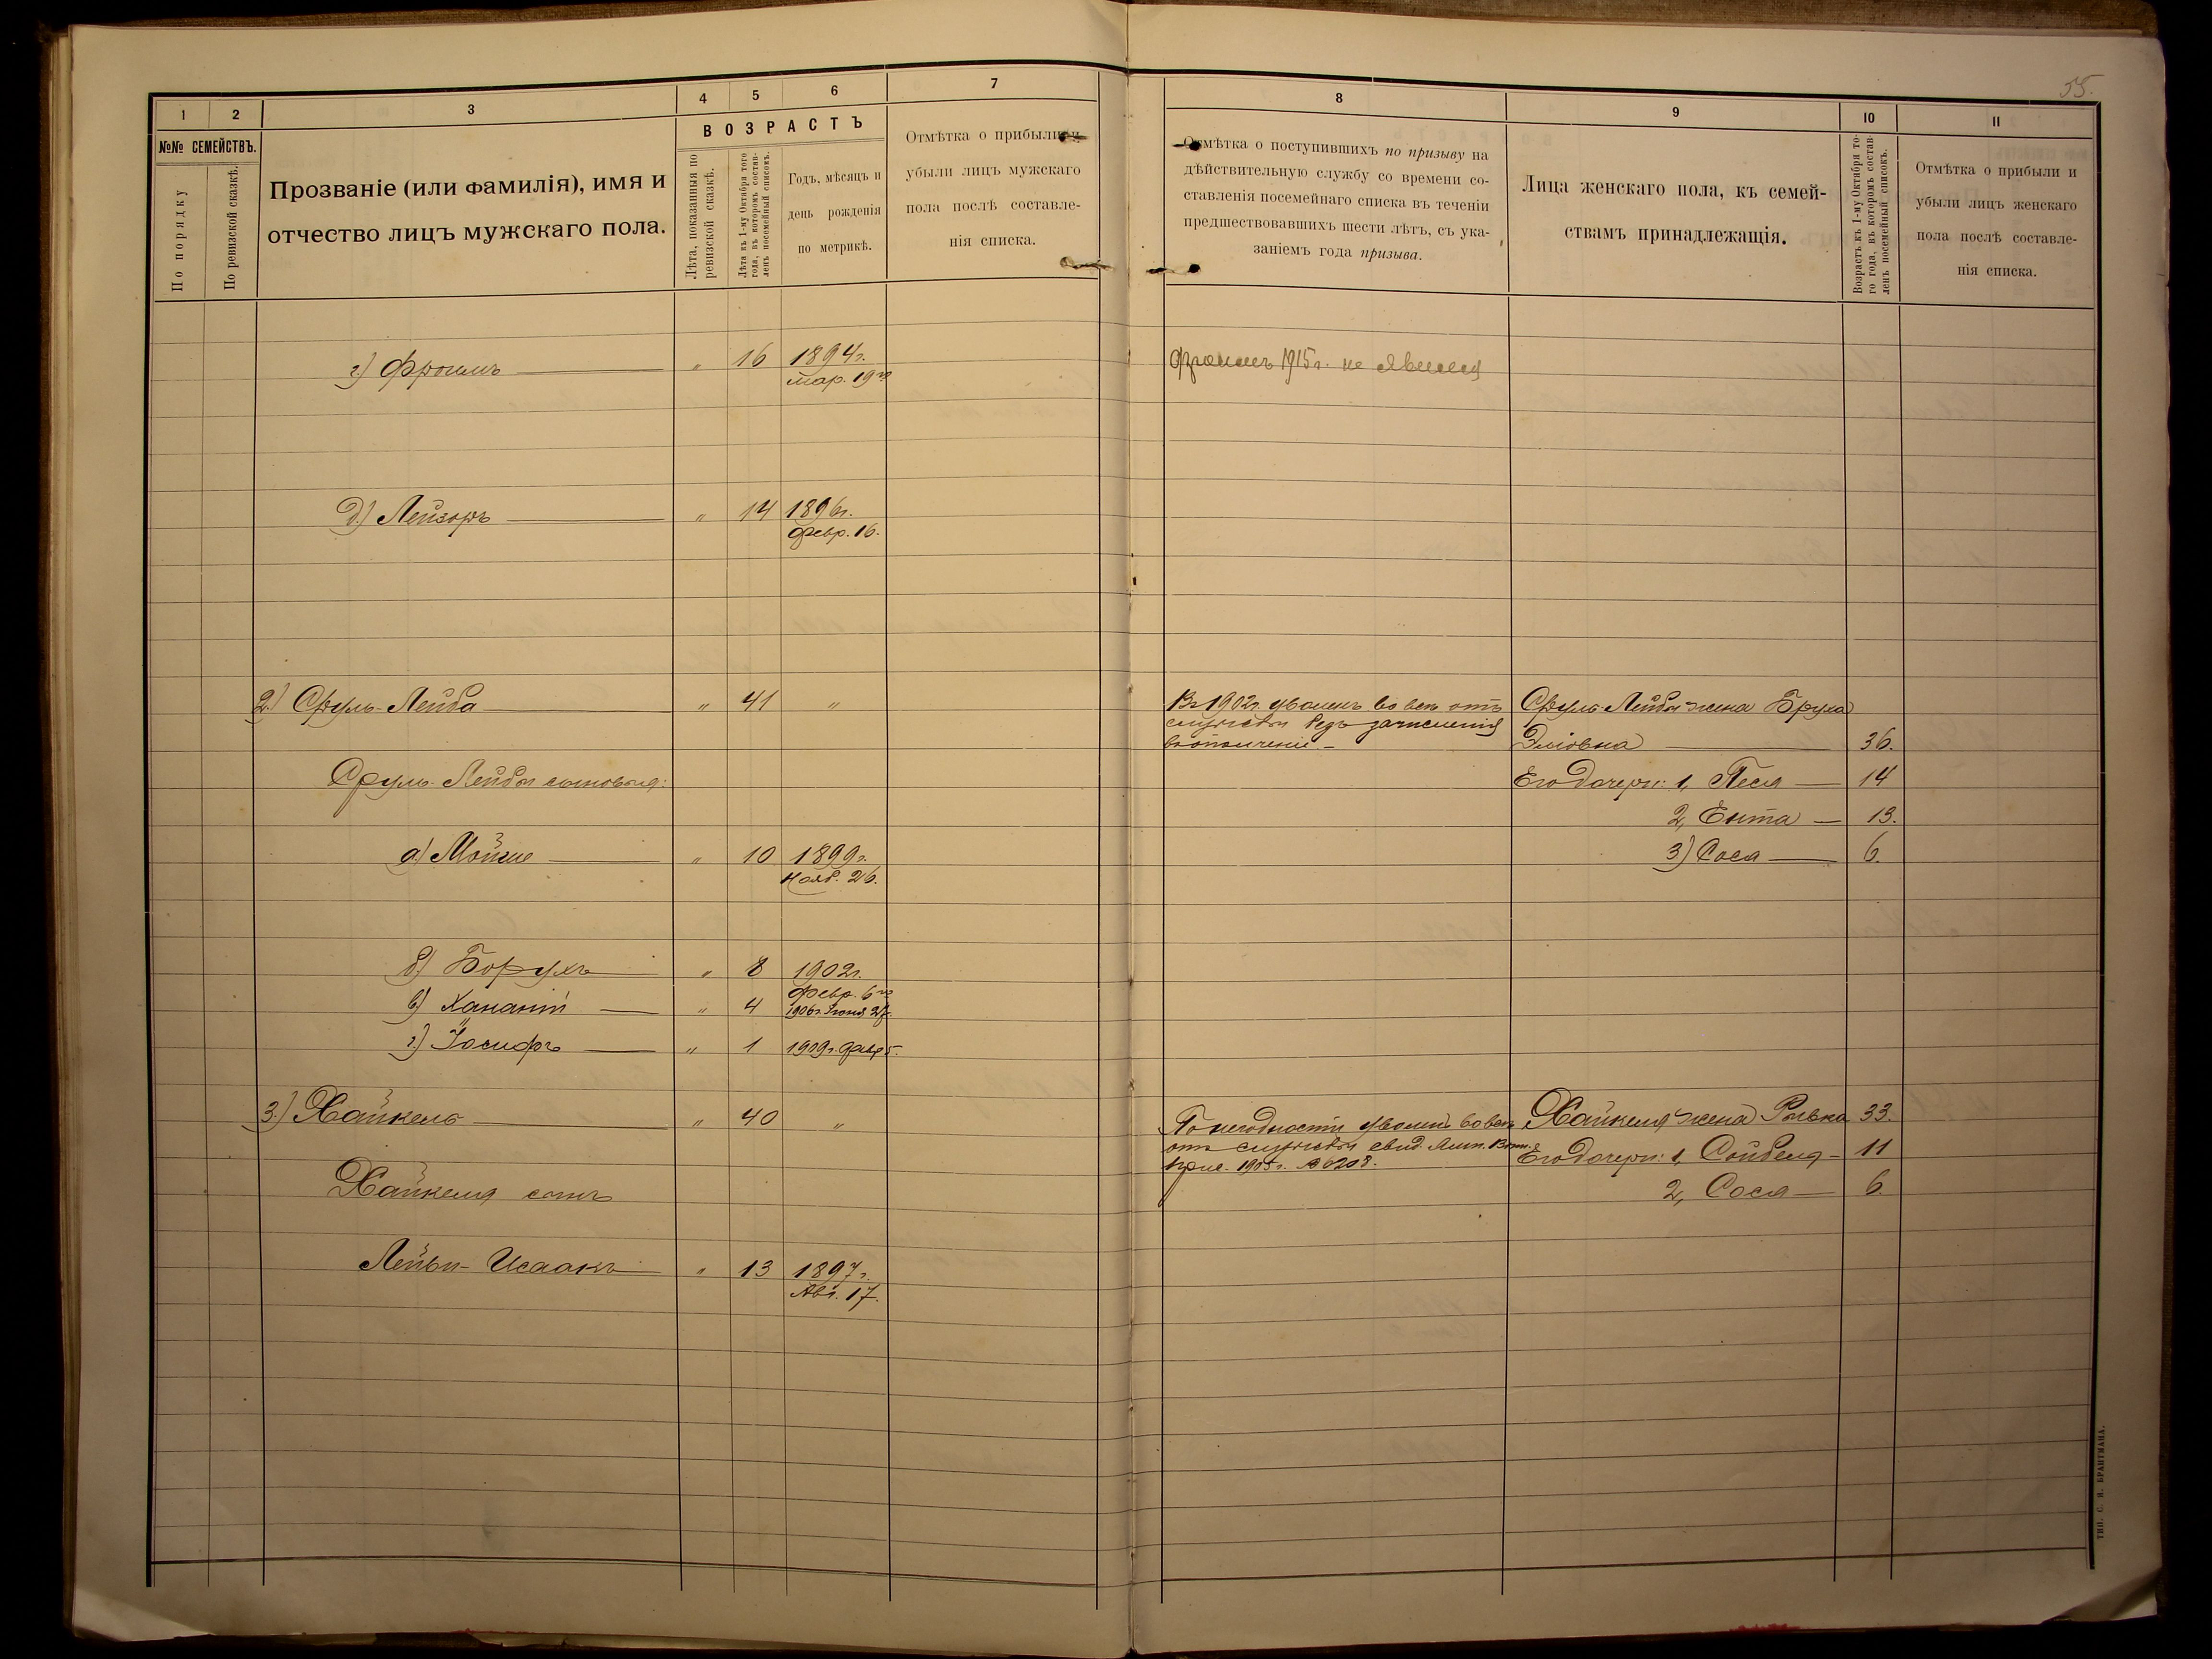 55.
1 2 3 4 5 6 7
№№ СЕМЕЙСТВЪ.
По порядку
По ревизской сказкѣ.
Прозваніе (или фамилія), имя и
отчество лицъ мужскаго пола.
ВОЗРАСТЪ
Лѣта, показанныя по
ревизской сказкѣ.
Лѣта къ 1-му Октября того
года, въ которомъ состав-
ленъ посемейный списокъ.
Годъ, мѣсяцъ и
день рожденія
по метрикѣ.
Отмѣтка о прибыли и
убыли лицъ мужскаго
пола послѣ составле-
нія списка.
г) Фроимъ — " 16 1894г.
мар. 19го
д) Лейзоръ — " 14 1896г.
февр. 16.
2.) Сруль-Лейба — " 41 "
Сруль-Лейбы сыновья:
а) Мойше — " 10 1899г.
Нояб. 26.
б) Борухъ — " 8 1902г.
февр. 6го
в) Хананій — " 4 1906г. Іюня 27.
г) Іосифъ — " 1 1909г. февр 5.
3.) Хайкель — " 40 "
Хайкеля сынъ
Лейви-Исаакъ — " 13 1897г.
Авг. 17.
8 9 10 11
Отмѣтка о поступившихъ по призыву на
дѣйствительную службу со времени со-
ставленія посемейнаго списка въ теченіи
предшествовавшихъ шести лѣтъ, съ ука-
заніемъ года призыва.
Лица женскаго пола, къ семей-
ствамъ принадлежащія.
Возрастъ къ 1-му Октября то-
го года, въ которомъ состав-
ленъ посемейный списокъ.
Отмѣтка о прибыли и
убыли лицъ женскаго
пола послѣ составле-
нія списка.
Фроимъ 1915г. не явился
Въ 1902г. уволенъ во все отъ
службы безъ зачисленія
въ ополченіе —
Сруль-Лейбы жена Бруха
Эліовна — 36.
Его дочери: 1, Песя — 14
2, Ента — 13.
3) Сося — 6.
По негодности уволенъ во все
отъ службы свид. Воин.
прис. 1905г. № 6208.
Хайкеля жена Рывка 33.
Его дочери: 1, Сойбеля — 11
2, Сося — 6.
ТИП. С. Н. БРАНГМАНА.